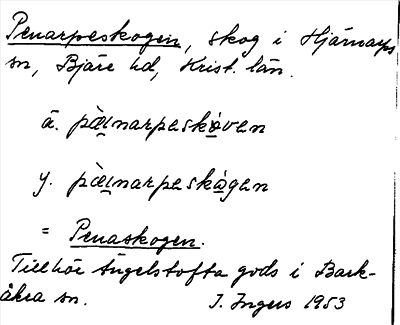 Penarpeskogen, skog i Hjärnarps
sn, Bjäre hd, Krist. län.
ä. pæ̀ɩnarpeskåven
y. pæ̀ɩnarpeskågen
= Penaskogen.
Tillhör Ängelstofta gods i Bark-
åkra sn. I. Ingers 1953